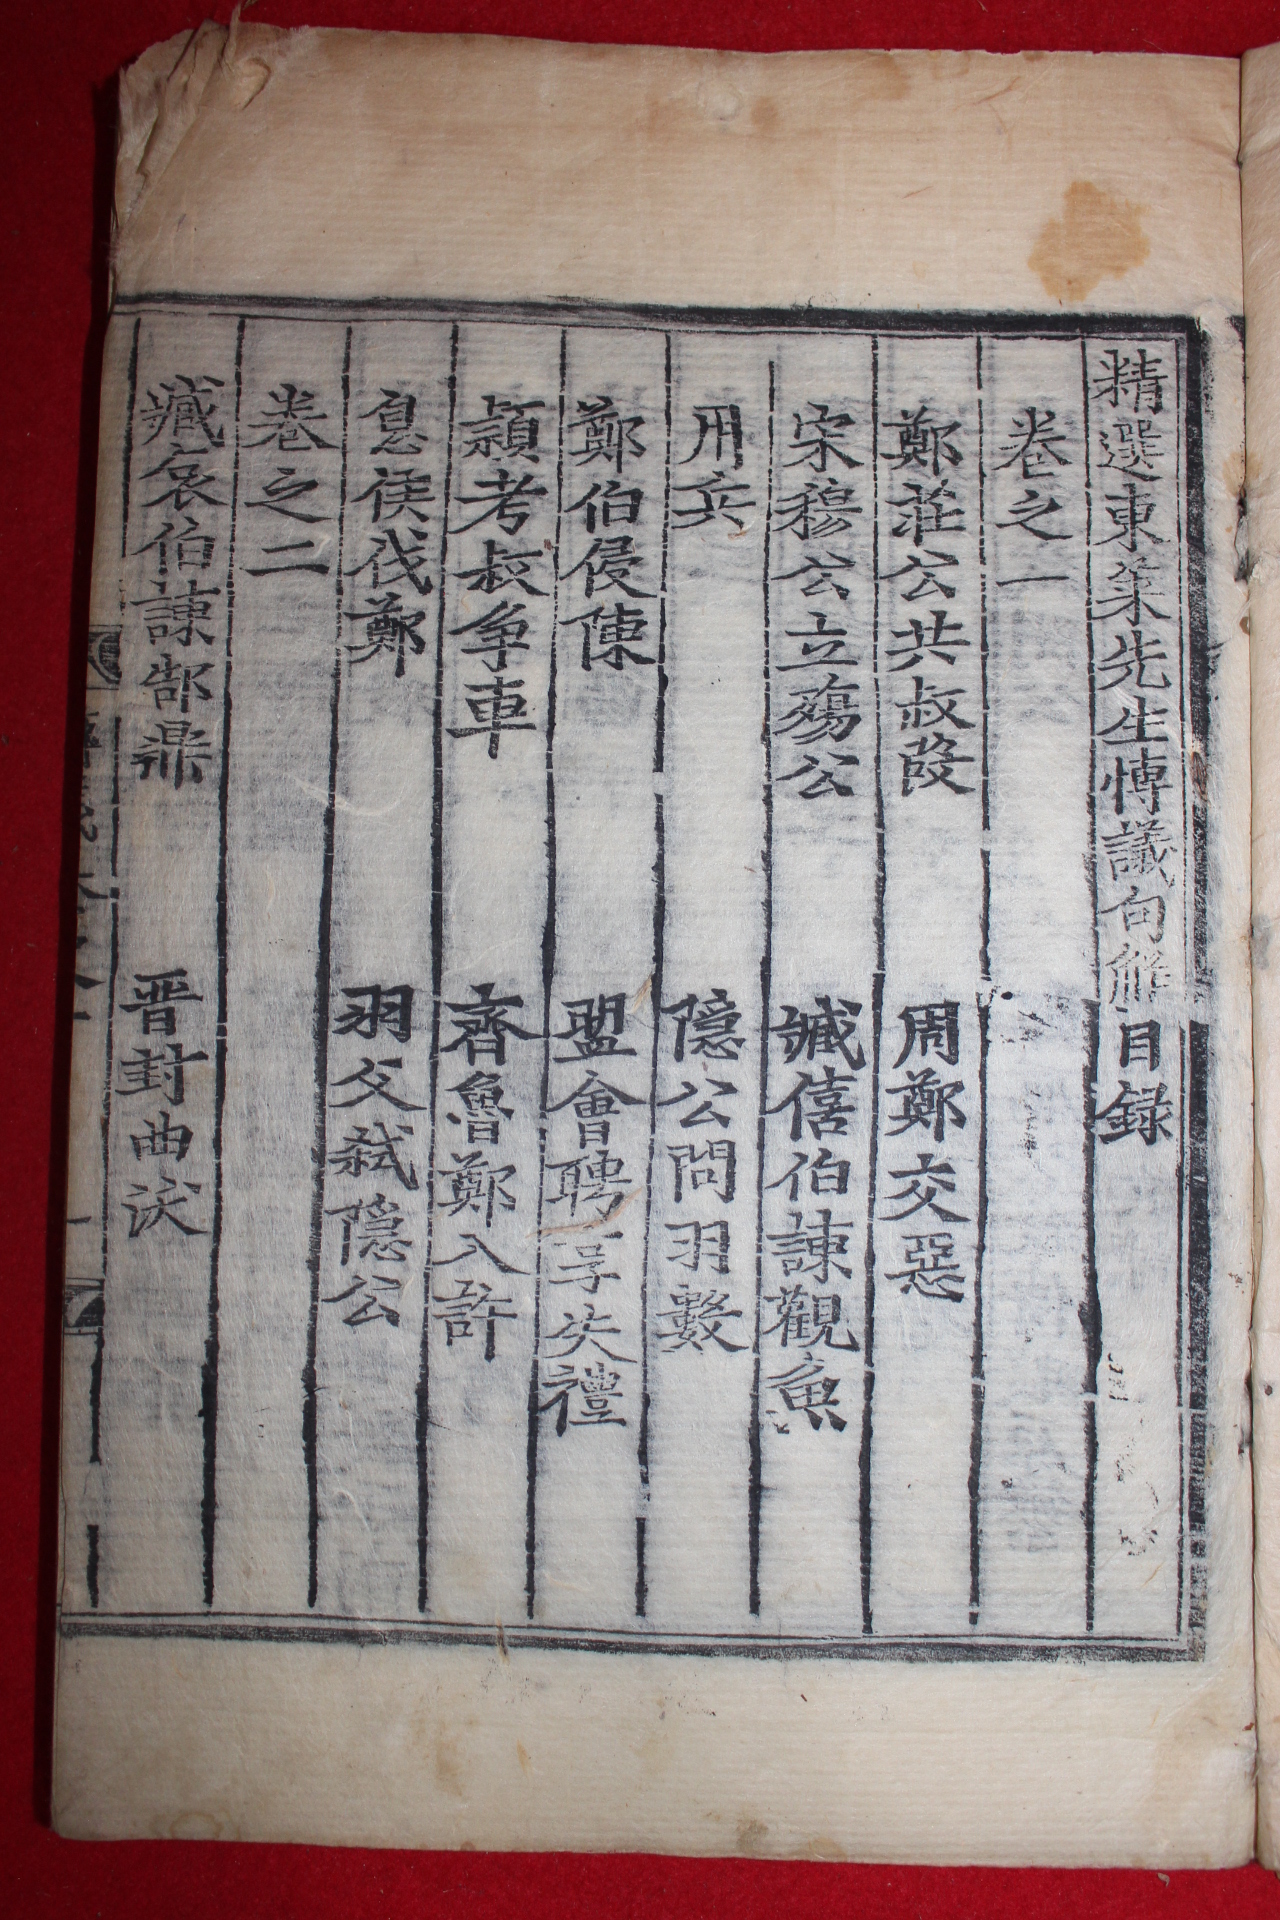 精選東莱先生愽議句觧目録
卷之一
鄭莊公共叔段
周鄭交惡
宋穆公立殤公
臧僖伯諫觀魚
用兵
隠公問羽數
鄭伯侵陳
盟會聘享失禮
頴考叔争車
齊魯鄭入許
息侯伐鄭
羽父弑隠公
卷之二
臧哀伯諫郜鼎
晋封曲沃